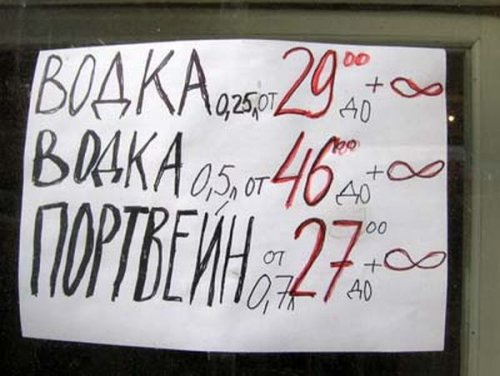 ВОДКА 0,25л от 29 00 ДО +∞
ВОДКА 0,5л от 46 00 ДО +∞
ПОРТВЕЙН 0,7л от 27 00 ДО +∞